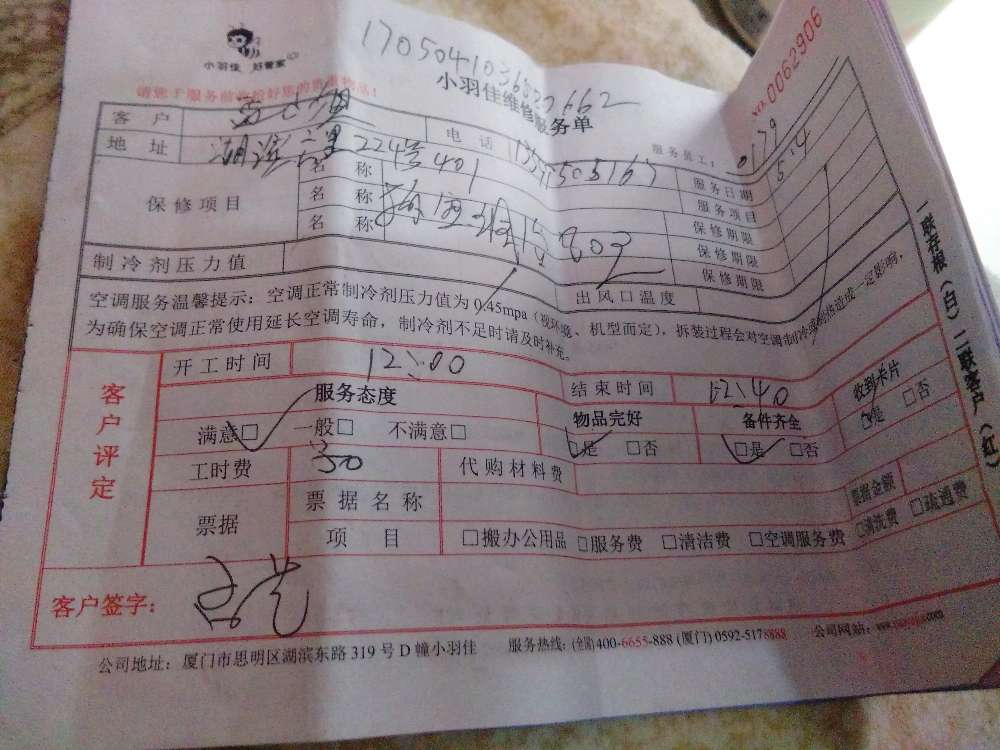 小羽佳 好管家
NO.0062906
小羽佳维修服务单
服务员工: 0179
客户
电话
服务日期 5.4
地址 湖滨 224号401
服务项目
保修项目 名称
保修期限
名称
保修期限
名称
保修期限
制冷剂压力值 出风口温度
空调服务温馨提示:空调正常制冷剂压力值为0.45mpa(视环境、机型而定),拆装过程会对空调制冷或制热造成一定影响,
为确保空调正常使用延长空调寿命,制冷剂不足时请及时补充。
一联存根(白)二联客户(红)
客户评定
开工时间 12:00 结束时间 12:40
服务态度 物品完好 备件齐全 收到卡片
满意□ 一般□ 不满意□ □是 □否 □是 □否 □是 □否
工时费 30 代购材料费
票据 票据名称 票据金额
项目 □搬办公用品 □服务费 □清洁费 □空调服务费 □清洗费 □疏通费
客户签字:
公司地址:厦门市思明区湖滨东路319号D幢小羽佳 服务热线:(全国)400-6655-888 (厦门) 0592-5178888 公司网站: